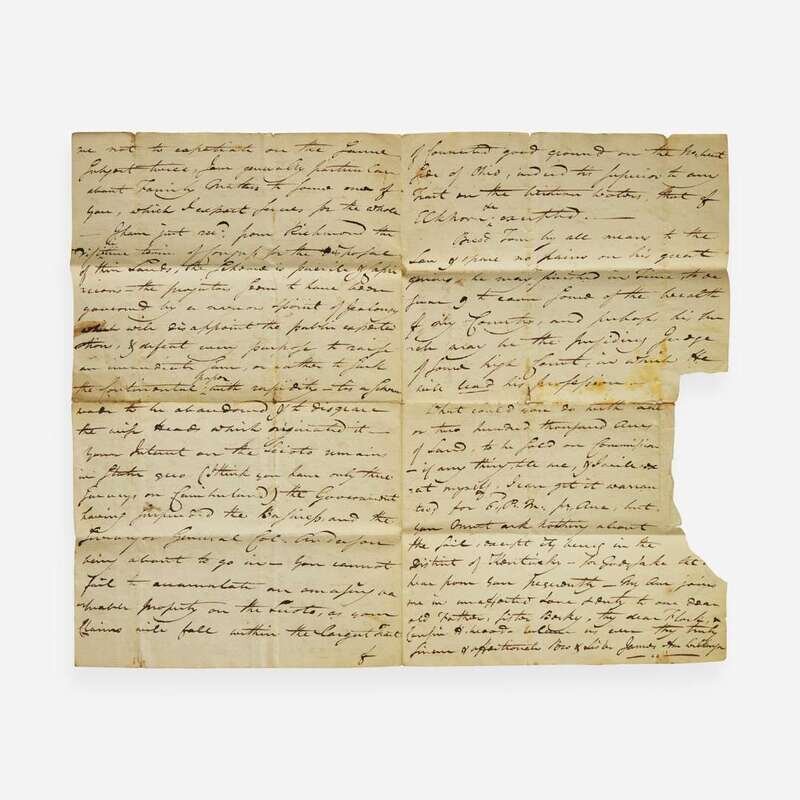 me not to expatiate on the same
Subject twice, I am generally particular
about Family Matters to some one of
you, which I expect serves for the whole
I have just recd. from Richmond the
of Congress for the disposal
of their Lands, the Scheme is puerile &
the projectors seem to have been
governed by a narrow spirit of Jealousy
which will disappoint the public expecta
tion, & defeat every purpose to raise
an immediate Sum, or rather to sink
the Continental paper; with confidence
to be abandoned & to disgrace
the wise Heads which originated it —
Your Interest on the Scioto remains
in Statu quo (I think you have only three
Surveys on Cumberland) the Government
having suspended the Business, and the
Surveyor General Col. Anderson
being about to go in — You cannot
fail to accumulate an amazing va
-luable property on the Scioto, as your
Claims will fall within the largest Tract
of
of connected good ground on the Northwest
side of Ohio, indeed to superior to any
Tract on the Western Waters, that of
Elkhorn excepted. —
Tom by all means to the
Law & spare no pains on his great
genius, he may finished in Time to be
to earn some of the wealth
of this Country, and perhaps his
may be the presiding Judge
of some high Court, in which He
will lead his profession
What could you do with one
or two hundred thousand Acres
of Land, to be sold on Commission
— if any thing, let me, & I will
at myself, I can get it warran
ted for Pr. Acre, but
you must ask nothing about
the Soil, except its being in the
District of Kentucky — for Gods sake let
hear from you frequently — My Ann joins
me in unaffected Love & duty to our dear
old Father, Sister Becky, thy dear &
Cousin is ever thy truly
sincere & affectionate Bro & Sister James